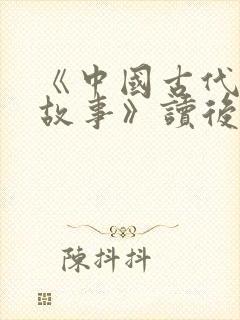 《中國古代
故事》讀後
陳抖抖